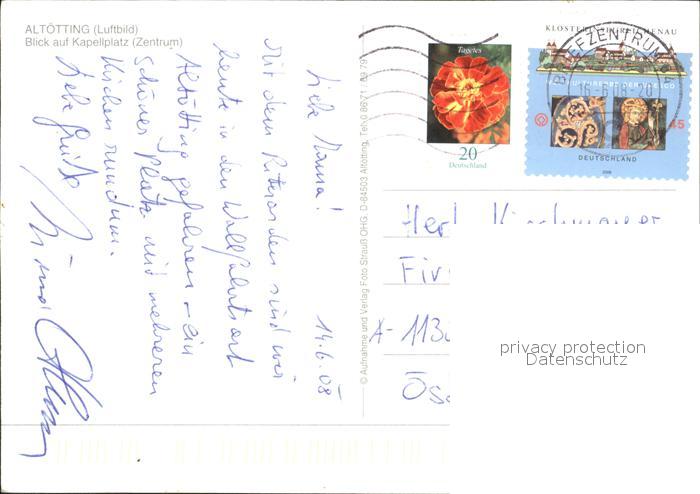 ALTÖTTING (Luftbild)
Blick auf Kapellplatz (Zentrum)
14.6.08
Liebe Mama!
Mit dem Ritterorden sind wir
heute in den Wallfahrtsort
Altötting gefahren – ein
schöner Platz mit mehreren
Kirchen rundum.
Liebe Grüße
© Aufnahme und Verlag Foto Strauß OHG, D-84503 Altötting, Tel. 0 86 71 / 69 79
Tagetes
20
Deutschland
KLOSTERINSEL REICHENAU
BRIEFZENTRUM
45
DEUTSCHLAND
2008
Herr
A-1130
privacy protection
Datenschutz